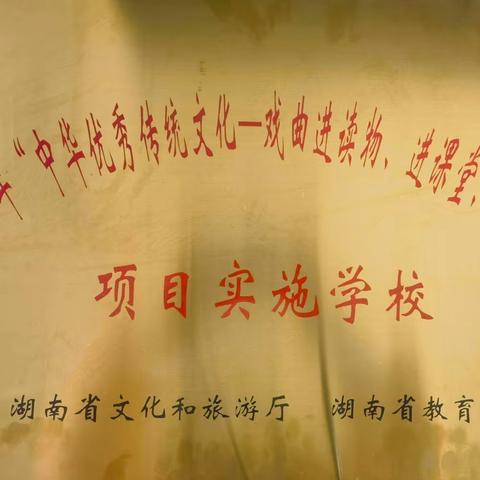 “中华优秀传统文化—戏曲进读物、进课堂、
项目实施学校
湖南省文化和旅游厅 湖南省教育